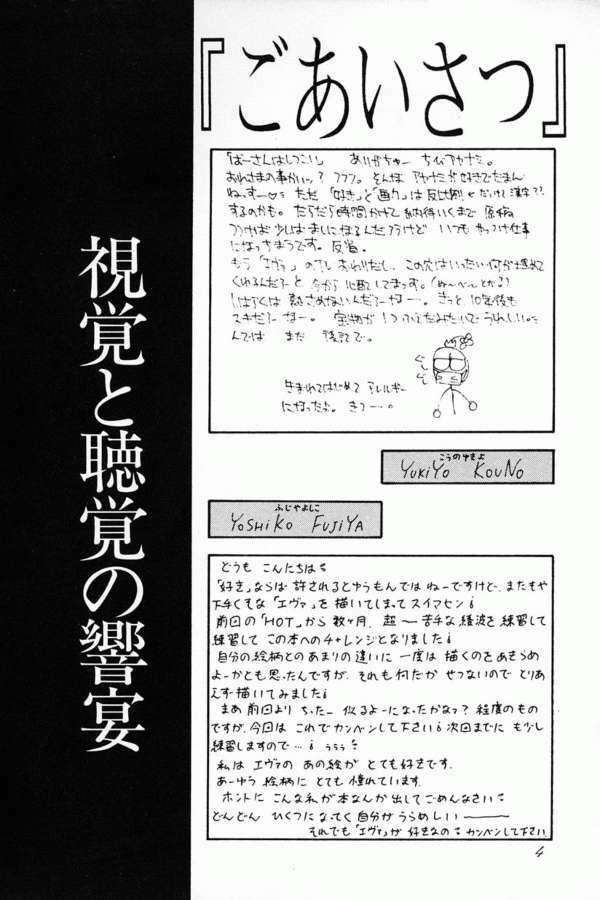 『ごあいさつ』
視覚と聴覚の響宴
「ばーさんはしつこい」 ありがちゅー ちびアヤナミ。
おれさまの事かいッ? フフフ。そんな アヤナミが好きでたまん
ねっすー♡ ただ「好き」と「画力」は反比例
するのかも。だらだら時間かけて 納得いくまで 原稿
つけば 少しはましになるんだろうけど いつも やっつけ仕事
になっちまうです。反省。
もう「エヴァ」の
くれるんだろーと 今から心配してまっす。
しばらくは 熱さめないんだろーなー…。きっと10年後も
スキだろーなー。宝物が1つふえたみたいで うれしい。
んでは また 後記で。
ぐし ぐし
生まれてはじめて アレルギー
になったよ。きつー…。
こうのゆきよ
YUKIYO KOUNO
ふじやよしこ
YOSHIKO FUJIYA
どうも こんにちは!
「好き」ならば 許されるとゆうもんではねーですけど、またもや
下手くそな「エヴァ」を描いてしまってスイマセン!
前回の「HOT」から数ヶ月、超〜苦手な綾波を練習して
練習して この本へのチャレンジとなりました!
自分の絵柄とのあまりの違いに 一度は描くのをあきらめ
よーかとも思ったんですが、それも何だか せつないので とりあ
えず描いてみました!
まぁ 前回より ちったー 似るよーになったかなァ?程度のもの
ですが、今回は これでカンベンして下さい! 次回までに もう少し
練習しますので…! ううう!
私は エヴァの あの絵が とても好きです。
あーゆう 絵柄に とても 憧れています。
ホントに こんな私が本なんか出してごめんなさい!
どんどん ひくつになってく自分がうらめしい———
それでも「エヴァ」が好きなの! カンベンして下さい
4